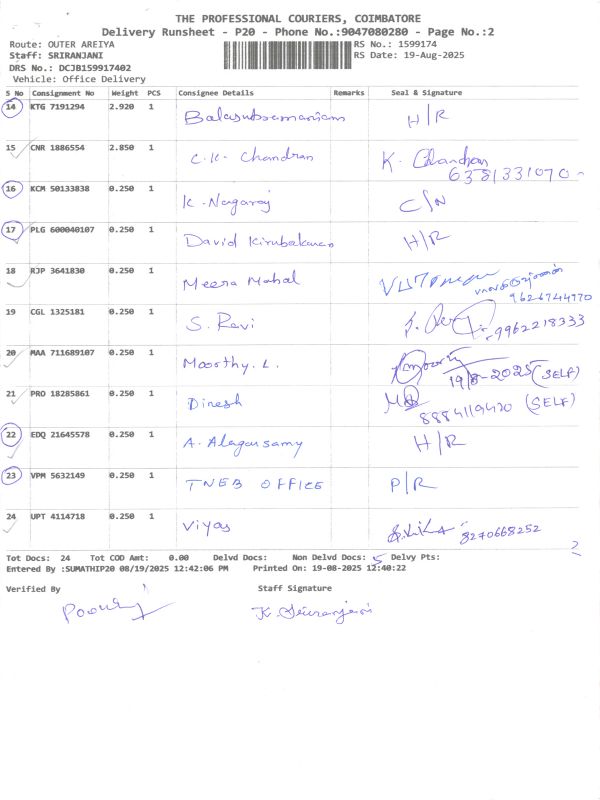 THE PROFESSIONAL COURIERS, COIMBATORE
Delivery Runsheet - P20 - Phone No.:9047080280 - Page No.:2
Route: OUTER AREIYA RS No.: 1599174
Staff: SRIRANJANI RS Date: 19-Aug-2025
DRS No.: DCJB159917402
Vehicle: Office Delivery
S No Consignment No Weight PCS Consignee Details Remarks Seal & Signature
14 KTG 7191294 2.920 1 Balasubramaniam H/R
15 CNR 1886554 2.850 1 C.K. Chandran K. Chandran
6381331070
16 KCM 50133838 0.250 1 K. Nagaraj C/N
17 PLG 600040107 0.250 1 David Kirubakaran H/R
18 RJP 3641830 0.250 1 Meera Mahal
9626744770
19 CGL 1325181 0.250 1 S. Ravi 9962218333
20 MAA 711689107 0.250 1 Moorthy. L. 19/8-2025 (SELF)
21 PRO 18285861 0.250 1 Dinesh 8884119420 (SELF)
22 EDQ 21645578 0.250 1 A. Alagarsamy H/R
23 VPM 5632149 0.250 1 TNEB OFFICE P/R
24 UPT 4114718 0.250 1 Viyas 8270668252
Tot Docs: 24 Tot COD Amt: 0.00 Delvd Docs: Non Delvd Docs: 5 Delvy Pts: 2
Entered By :SUMATHIP20 08/19/2025 12:42:06 PM Printed On: 19-08-2025 12:40:22
Verified By Staff Signature
K. Sriranjani